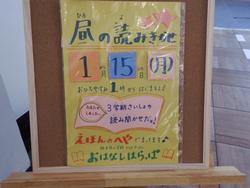 ひる
昼の読みきかせ
1月15日(月)
おひるやすみ1時からはじまるよ!
3学期さいしょの
読み聞かせだよ。
えほんのへやでまってるよ♪
おはなしはらっぱ